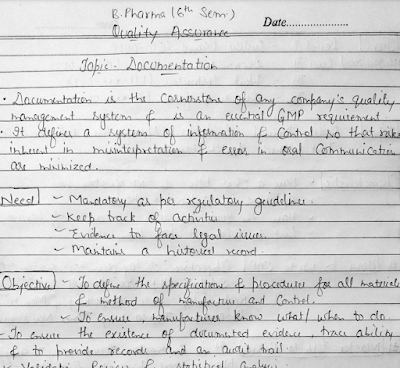 B.Pharma (6th Sem)
Date....................
Quality Assurance
Topic - Documentation
• Documentation is the cornerstone of any company's quality
management system & is an essential GMP requirement.
• It defines a system of information & Control so that risks
inherent in misinterpretation & error in oral Communication
are minimized.
Need - Mandatory as per regulatory guidelines
- Keep track of activities
- Evidence to face legal issues
- Maintains a historical record.
Objective - To define the specifications & procedures for all materials
& method of manufacture and Control.
- To ensure manufacturer know what/ when to do
- To ensure the existence of documented evidence, trace ability
& to provide records and an audit trail.
- Validation Review & statistical analysis